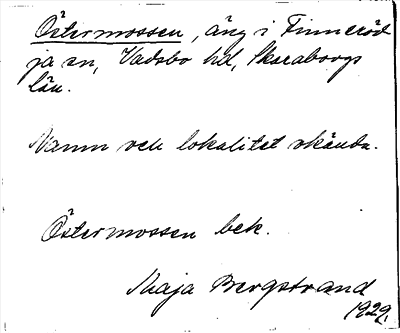 Östermossen, äng i Finneröd
ja sn, Vadsbo hd, Skaraborgs
län.
Namn och lokalitet okända.
Östermossen bek.
Maja Bergstrand
1929.